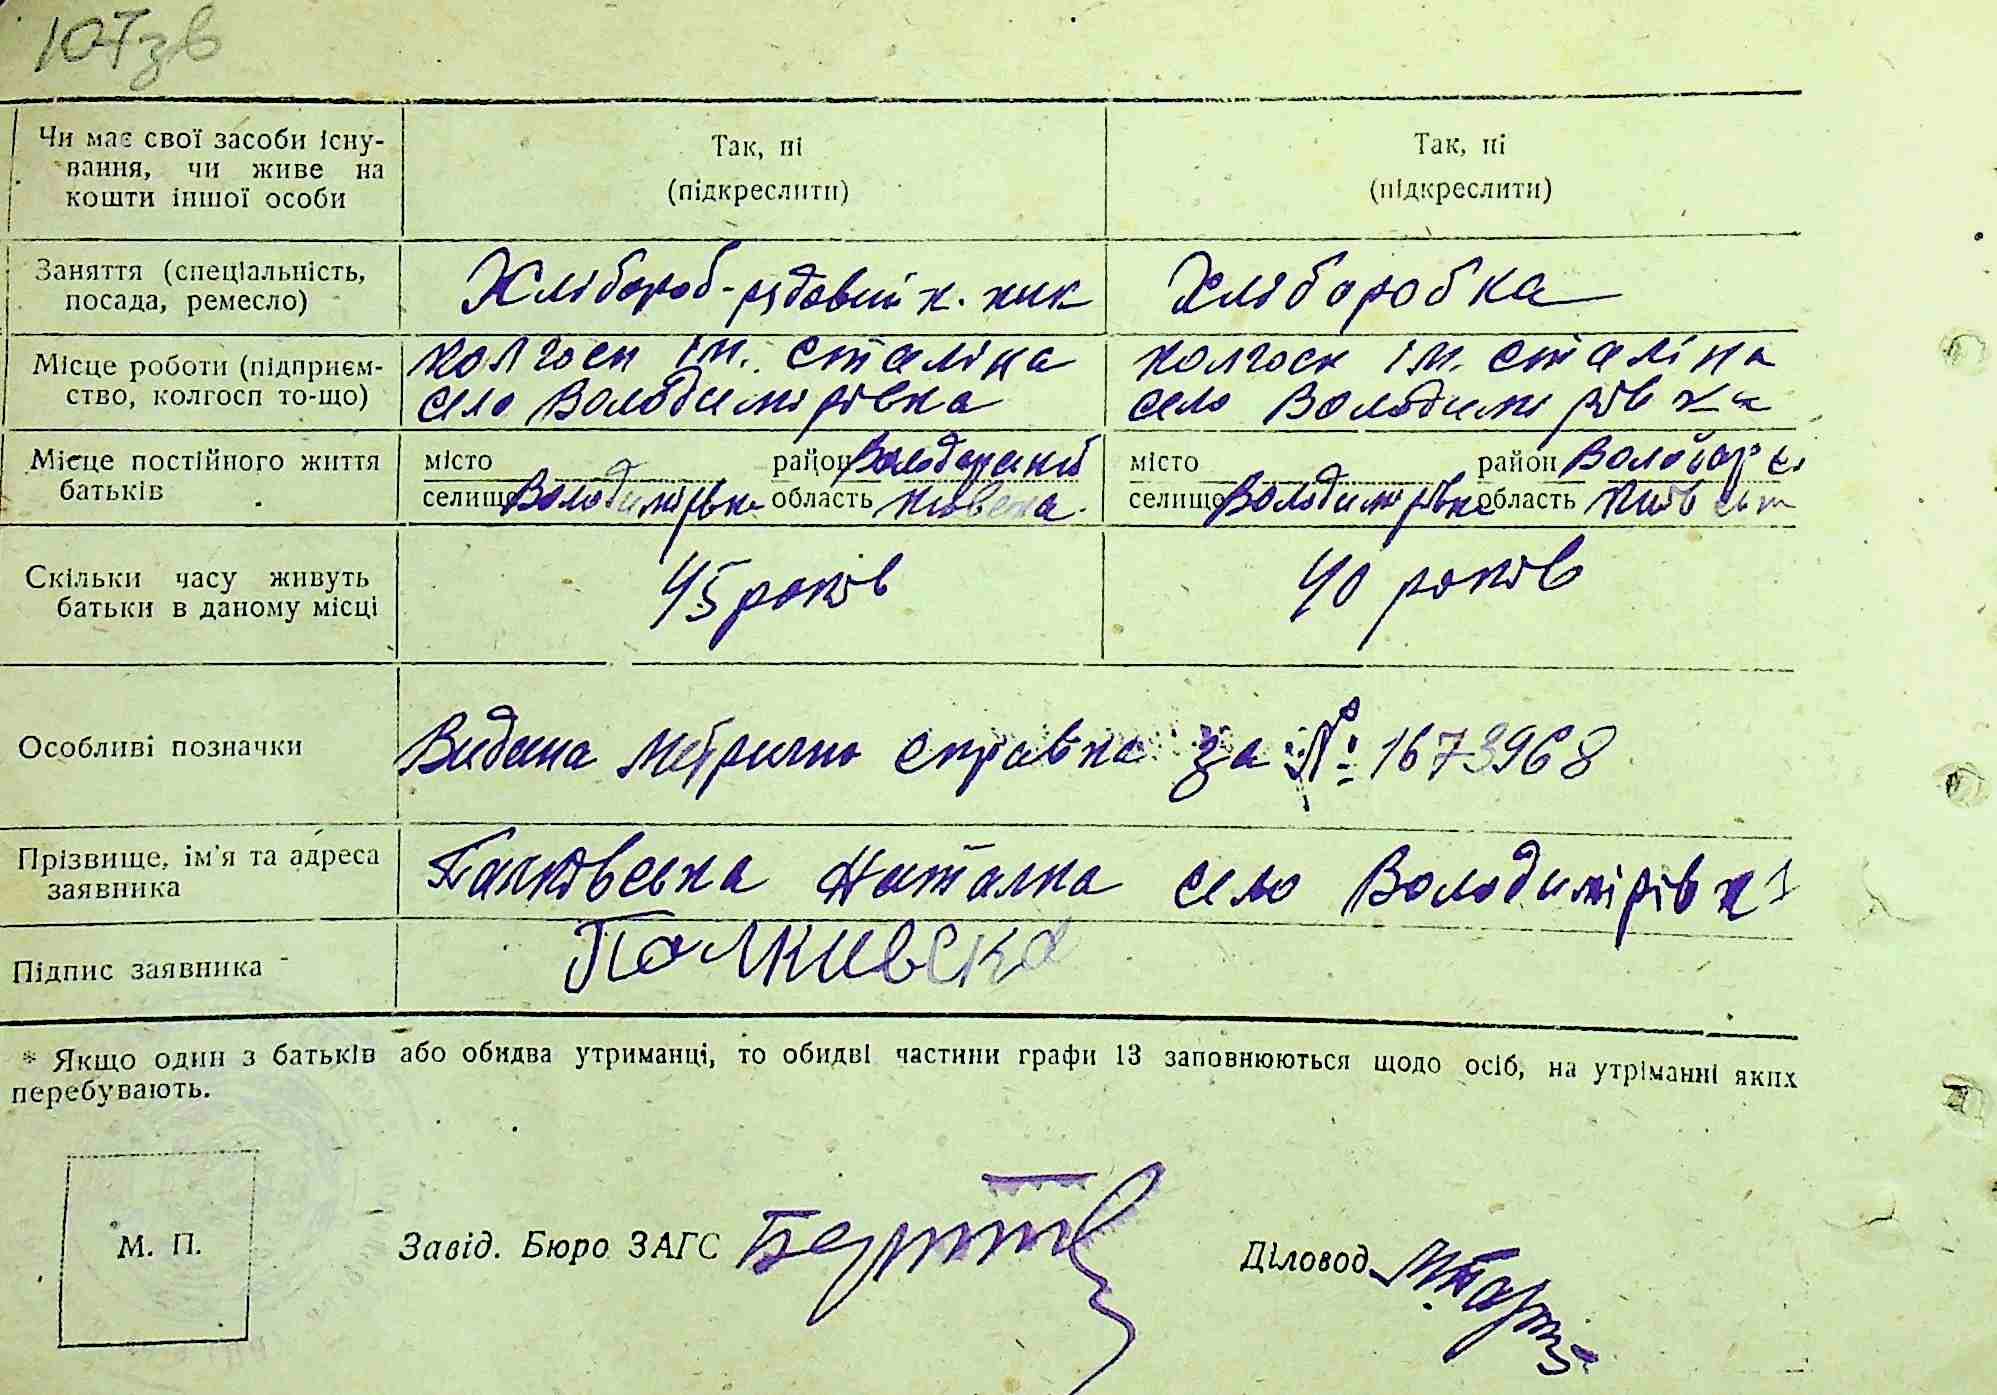 107зв
Чи має свої засоби існу-
вання, чи живе на
кошти іншої особи
Так, ні
(підкреслити)
Так, ні
(підкреслити)
Заняття (спеціальність,
посада, ремесло)
Хлібороб-рядовий к. ник
Хліборобка
Місце роботи (підприєм-
ство, колгосп то-що)
колгосп ім. сталіна
село Володимирівка
колгосп ім. сталіна
село Володимирівка
Місце постійного життя
батьків
місто район Володарський
селище Володимирівка область Київська
місто район Володарс
селище Володимирівка область Київськ
Скільки часу живуть
батьки в даному місці
45 років
40 років
Особливі позначки
Видана метрична справка за № 1673968
Прізвище, ім'я та адреса
заявника
Палківська Наталка село Володимирівка
Підпис заявника
Палкивска
* Якщо один з батьків або обидва утриманці, то обидві частини графи 13 заповнюються щодо осіб, на утріманні яких
перебувають.
М. П.
Завід. Бюро ЗАГС
Діловод